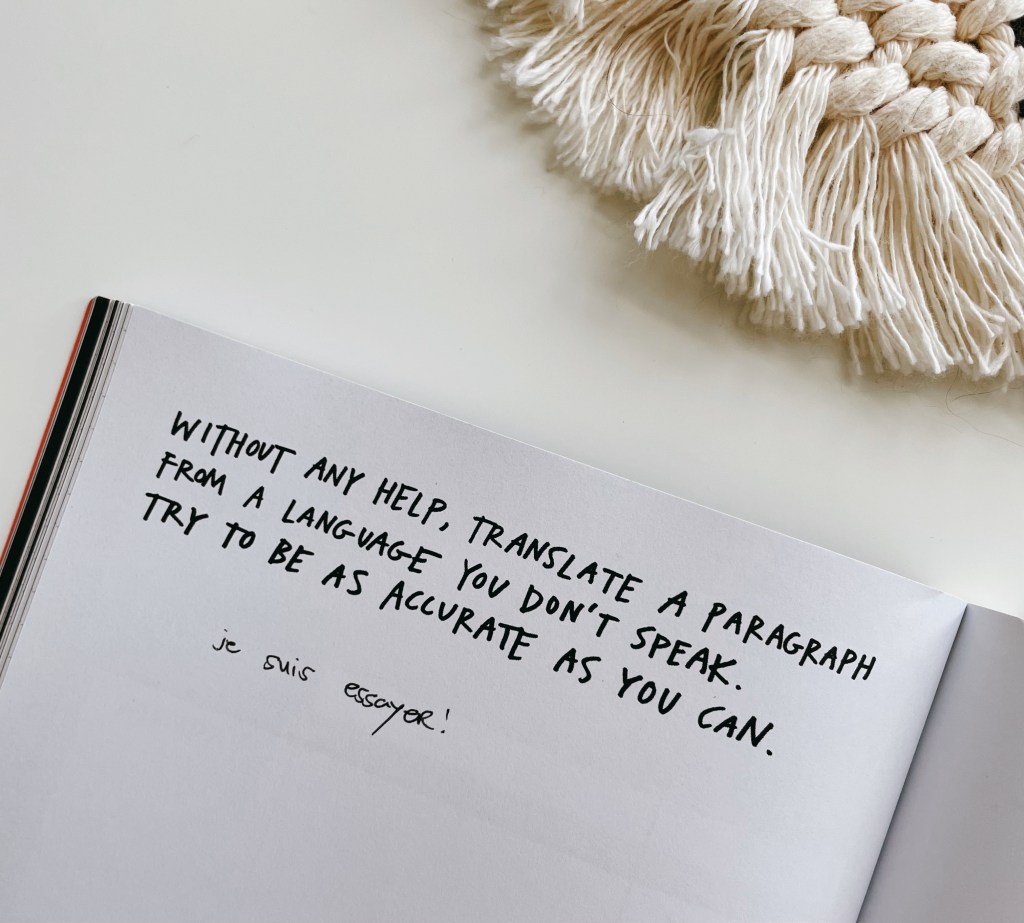 WITHOUT ANY HELP, TRANSLATE A PARAGRAPH
FROM A LANGUAGE YOU DON'T SPEAK.
TRY TO BE AS ACCURATE AS YOU CAN.
je suis essayer!